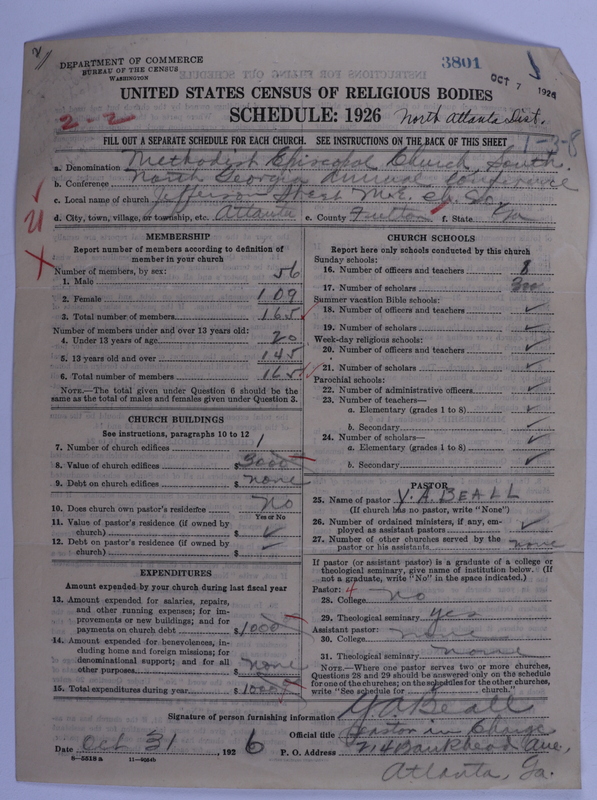 DEPARTMENT OF COMMERCE
BUREAU OF THE CENSUS
WASHINGTON
3801
OCT 7 1926
UNITED STATES CENSUS OF RELIGIOUS BODIES
SCHEDULE: 1926
North Atlanta Dist.
2-2
1-3-8
FILL OUT A SEPARATE SCHEDULE FOR EACH CHURCH. SEE INSTRUCTIONS ON THE BACK OF THIS SHEET
a. Denomination Methodist Episcopal Church, South.
b. Conference North Georgia Annual Conference
c. Local name of church Jefferson Street M.E. Ch. So.
d. City, town, village, or township, etc. Atlanta e. County Fulton f. State Ga
MEMBERSHIP
Report number of members according to definition of member in your church
Number of members, by sex:
1. Male 56
2. Female 109
3. Total number of members 165
Number of members under and over 13 years old:
4. Under 13 years of age 20
5. 13 years old and over 145
6. Total number of members 165
NOTE.—The total given under Question 6 should be the same as the total of males and females given under Question 3.
CHURCH BUILDINGS
See instructions, paragraphs 10 to 12
7. Number of church edifices 1
8. Value of church edifices $3000
9. Debt on church edifices $none
10. Does church own pastor's residence No
Yes or No
11. Value of pastor's residence (if owned by church) $ ✓
12. Debt on pastor's residence (if owned by church) $ ✓
EXPENDITURES
Amount expended by your church during last fiscal year
13. Amount expended for salaries, repairs, and other running expenses; for improvements or new buildings; and for payments on church debt $1000
14. Amount expended for benevolences, including home and foreign missions; for denominational support; and for all other purposes $none
15. Total expenditures during year $1000
CHURCH SCHOOLS
Report here only schools conducted by this church
Sunday schools:
16. Number of officers and teachers 8
17. Number of scholars
Summer vacation Bible schools:
18. Number of officers and teachers ✓
19. Number of scholars ✓
Week-day religious schools:
20. Number of officers and teachers ✓
21. Number of scholars ✓
Parochial schools:
22. Number of administrative officers ✓
23. Number of teachers—
a. Elementary (grades 1 to 8) ✓
b. Secondary ✓
24. Number of scholars—
a. Elementary (grades 1 to 8) ✓
b. Secondary ✓
PASTOR
25. Name of pastor Y. A. BEALL
(If church has no pastor, write "None")
26. Number of ordained ministers, if any, employed as assistant pastors ✓
27. Number of other churches served by the pastor or his assistants none
If pastor (or assistant pastor) is a graduate of a college or theological seminary, give name of institution below. (If not a graduate, write "No" in the space indicated.)
Pastor: 4
28. College No
29. Theological seminary yes
Assistant pastor:
30. College none
31. Theological seminary none
NOTE.—Where one pastor serves two or more churches, Questions 28 and 29 should be answered only on the schedule for one of the churches; on the schedules for the other churches, write "See schedule for church."
Signature of person furnishing information Y. A. Beall
Official title Pastor in Charge
Date Oct 31, 1926 P. O. Address 714 Bankhead Ave,
Atlanta, Ga.
8-5518a 11-9024b